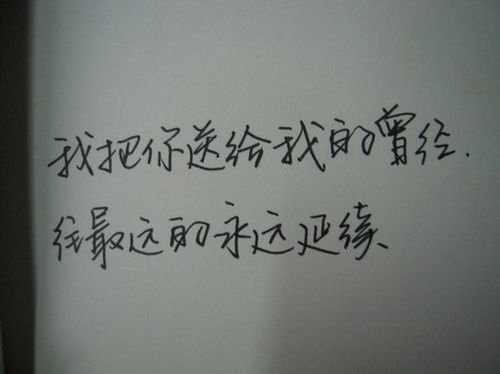 我把你送给我的曾经.
往最远的永远延续、